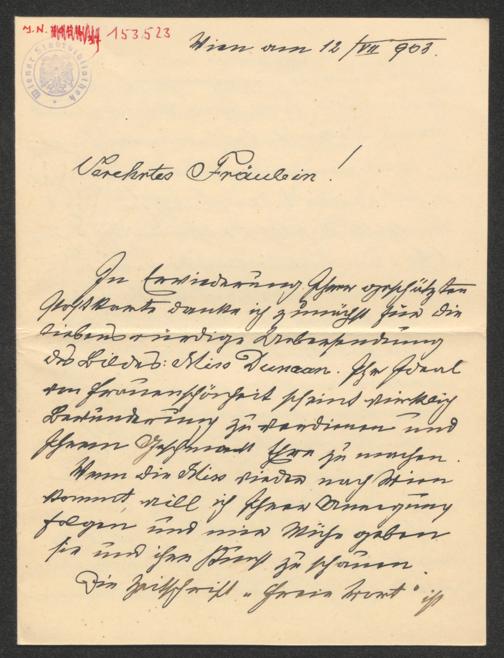 J. N. 153.523
Wiener Stadtbibliothek
Wien am 12/VII 903.
Verehrtes Fräulein!
In Erwiederung Ihrer geschätzten
Postkarte danke ich zunächst für die
liebenswürdige Uebersendung
des Bildes: Miss Duncan. Ihr Ideal
von Frauenschönheit scheint wirklich
Bewunderung zu verdienen und
Ihrem Geschmack Ehre zu machen.
Wenn die Miss wieder nach Wien
kommt, will ich Ihrer Anregung
folgen und mir Mühe geben
sie und ihre Kunst zu schauen.
Die Zeitschrift „Freie Wort" ist